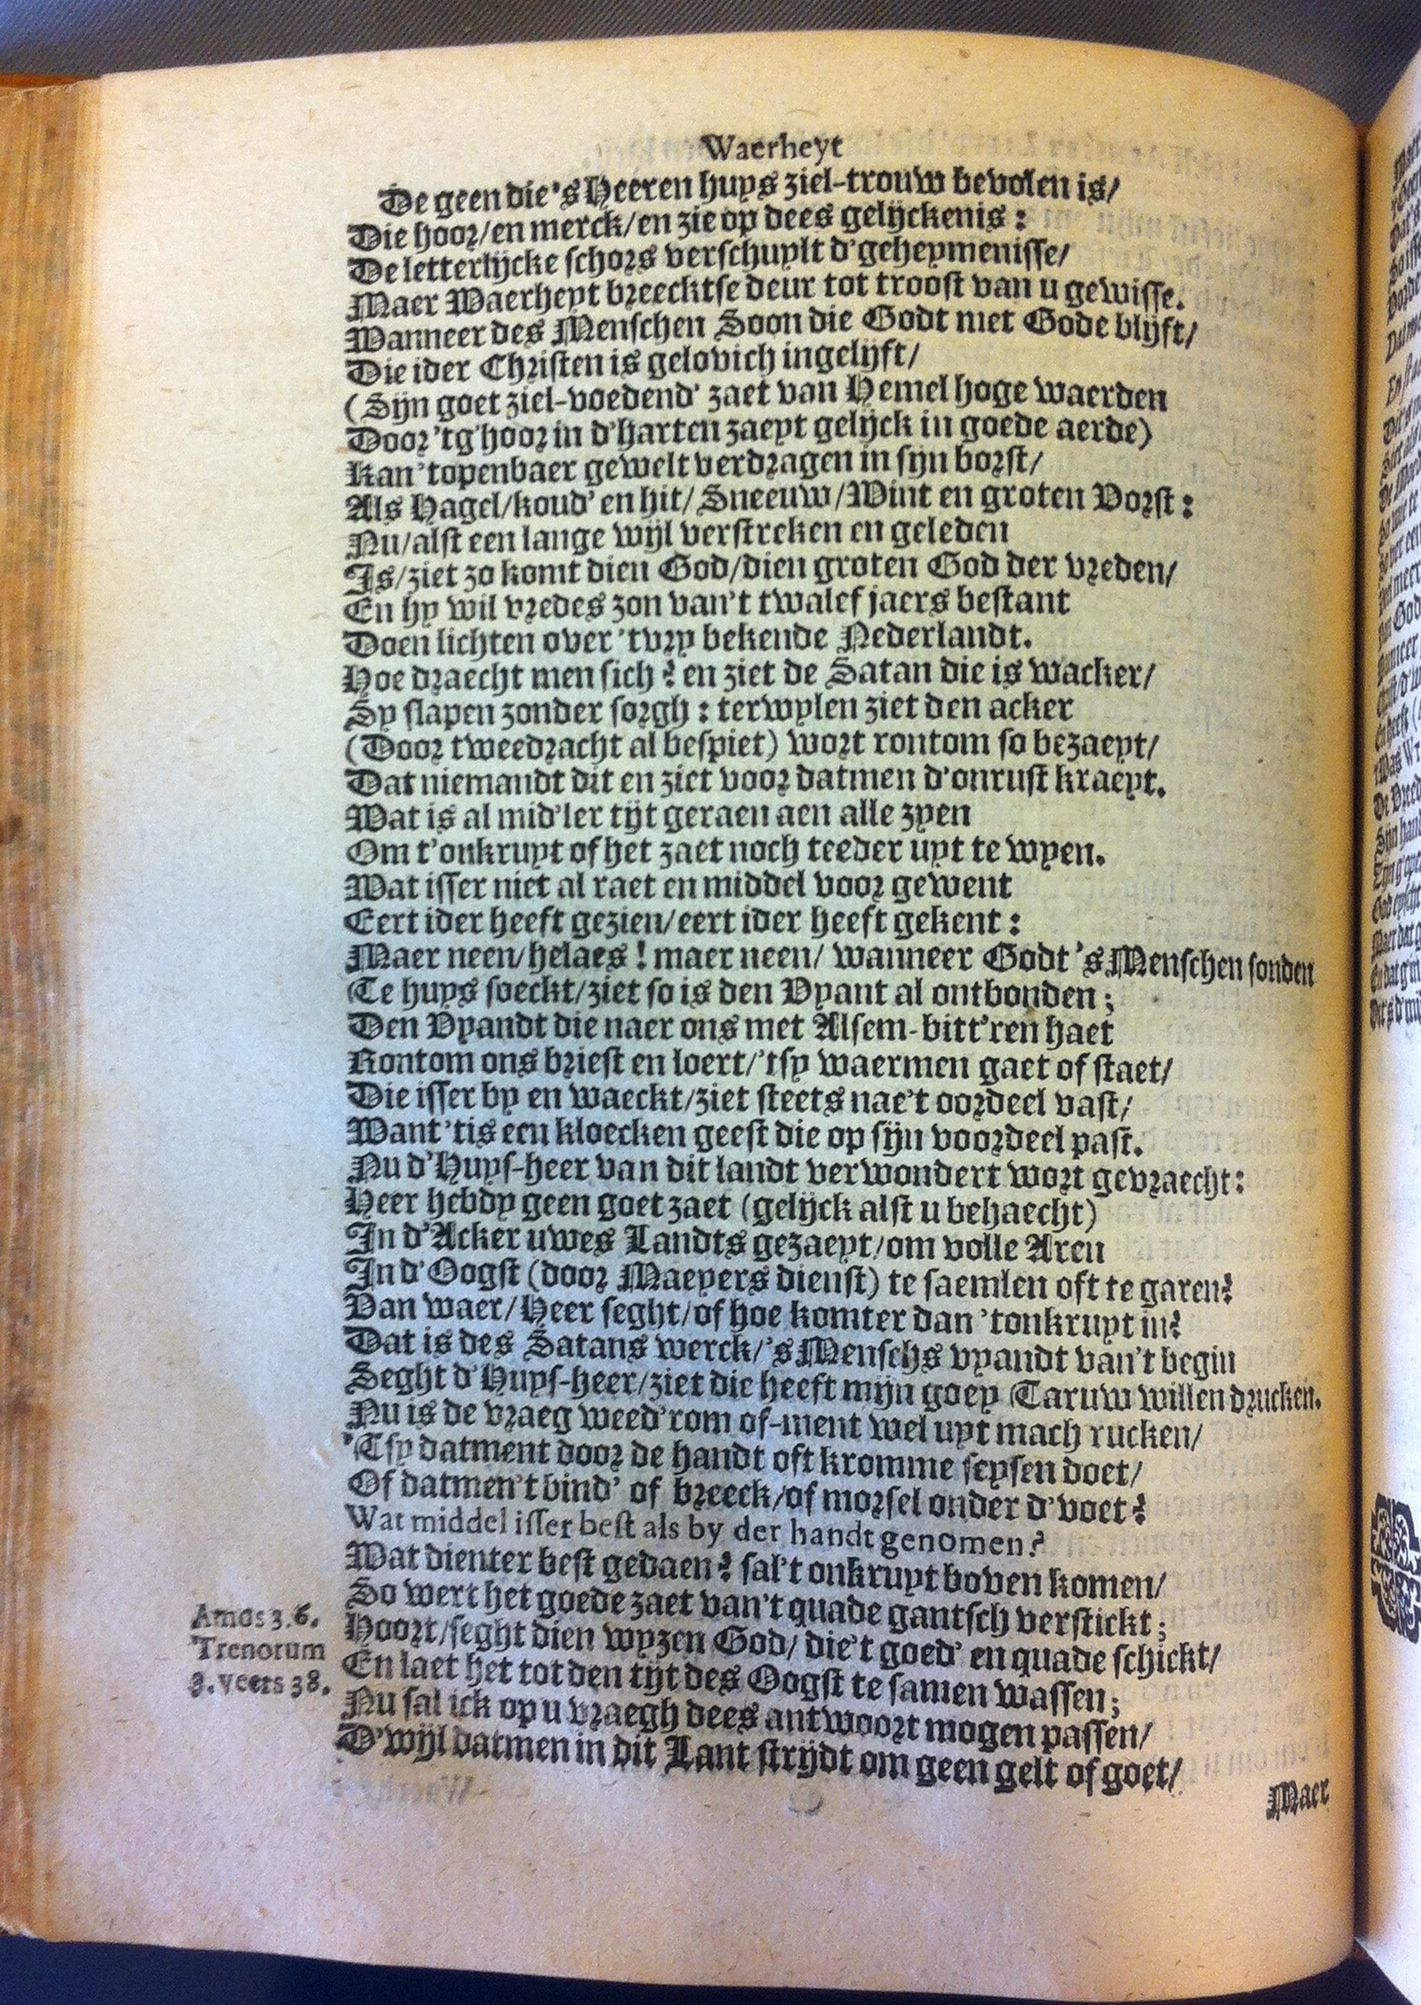 Waerheyt
De geen die 's Heeren huys ziel-trouw bevolen is/
Die hoor/en merck/en zie op dees gelijckenis:
De letterlijcke schors verschuylt d'geheymenisse/
Maer Waerheyt breecktse deur tot troost van u gewisse.
Wanneer des Menschen Soon die Godt met Gode blijft/
Die ider Christen is gelovich ingelijft/
(Sijn goet ziel-voedend' zaet van Hemel hoge waerden
Door 'tg'hoor in d'harten zaeyt gelijck in goede aerde)
Kan 'topenbaer gewelt verdragen in sijn borst/
Als Hagel/koud' en hit/Sneeuw/Wint en groten Vorst:
Nu/alst een lange wijl verstreken en geleden
Is/ziet zo komt dien God/dien groten God der vreden/
En hy wil vredes zon van't twalef jaers bestant
Doen lichten over 'tvry bekende Nederlandt.
Hoe draecht men sich? en ziet de Satan die is wacker/
Sy slapen zonder sorgh: terwylen ziet den acker
(Door tweedracht al bespiet) wort rontom so bezaeyt/
Dat niemandt dit en ziet voor datmen d'onrust kraeyt.
Wat is al mid'ler tijt geraen aen alle zyen
Om t'onkruyt of het zaet noch teeder uyt te wyen.
Wat isser niet al raet en middel voor gewent
Eert ider heeft gezien/eert ider heeft gekent:
Maer neen/helaes! maer neen/ wanneer Godt 's Menschen sonden
Te huys soeckt/ziet so is den Vyant al ontbonden;
Den Vyandt die naer ons met Alsem-bitt'ren haet
Rontom ons briest en loert/'tsy waermen gaet of staet/
Die isser by en waeckt/ziet steets nae't oordeel vast/
Want 'tis een kloecken geest die op sijn voordeel past.
Nu d'Huys-heer van dit landt verwondert wort gevraecht:
Heer hebdy geen goet zaet (gelijck alst u behaecht)
In d'Acker uwes Landts gezaeyt/om volle Aren
In d'Oogst (door Maeyers dienst) te saemlen oft te garen?
Van waer/Heer seght/of hoe komter dan 'tonkruyt in?
Dat is des Satans werck/'s Menschs vyandt van't begin
Seght d'Huys-heer/ziet die heeft mijn goey Taruw willen drucken.
Nu is de vraeg weed'rom of-ment wel uyt mach rucken/
'Tsy datment door de handt oft kromme seysen doet/
Of datmen't bind' of breeck/of morsel onder d'voet?
Wat middel isser best als by der handt genomen?
Wat dienter best gedaen? sal't onkruyt boven komen/
So wert het goede zaet van't quade gantsch verstickt;
Amos 3.6.
Trenorum
3. veers 38.
Hoort/seght dien wyzen God/ die't goed' en quade schickt/
En laet het tot den tijt des Oogst te samen wassen;
Nu sal ick op u vraegh dees antwoort mogen passen/
D'wijl datmen in dit Lant strijdt om geen gelt of goet/
Maer